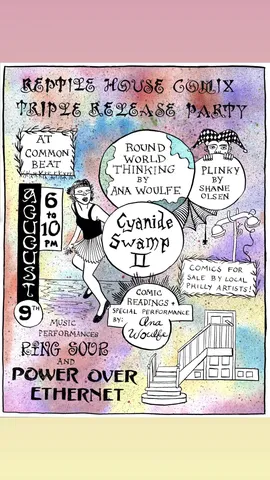 REPTILE HOUSE COMIX
TRIPLE RELEASE PARTY
AT
COMMON
BEAT
ROUND
WORLD
THINKING
BY
ANA WOULFE
PLINKY
BY
SHANE
OLSEN
AUGUST
9TH
6
TO
10
PM
Cyanide
Swamp
II
COMICS FOR
SALE BY LOCAL
PHILLY ARTISTS!
COMIC
READINGS +
SPECIAL PERFORMANCE
BY: Ana
Woulfe
MUSIC
PERFORMANCES
RING SOUR
AND
POWER OVER
ETHERNET